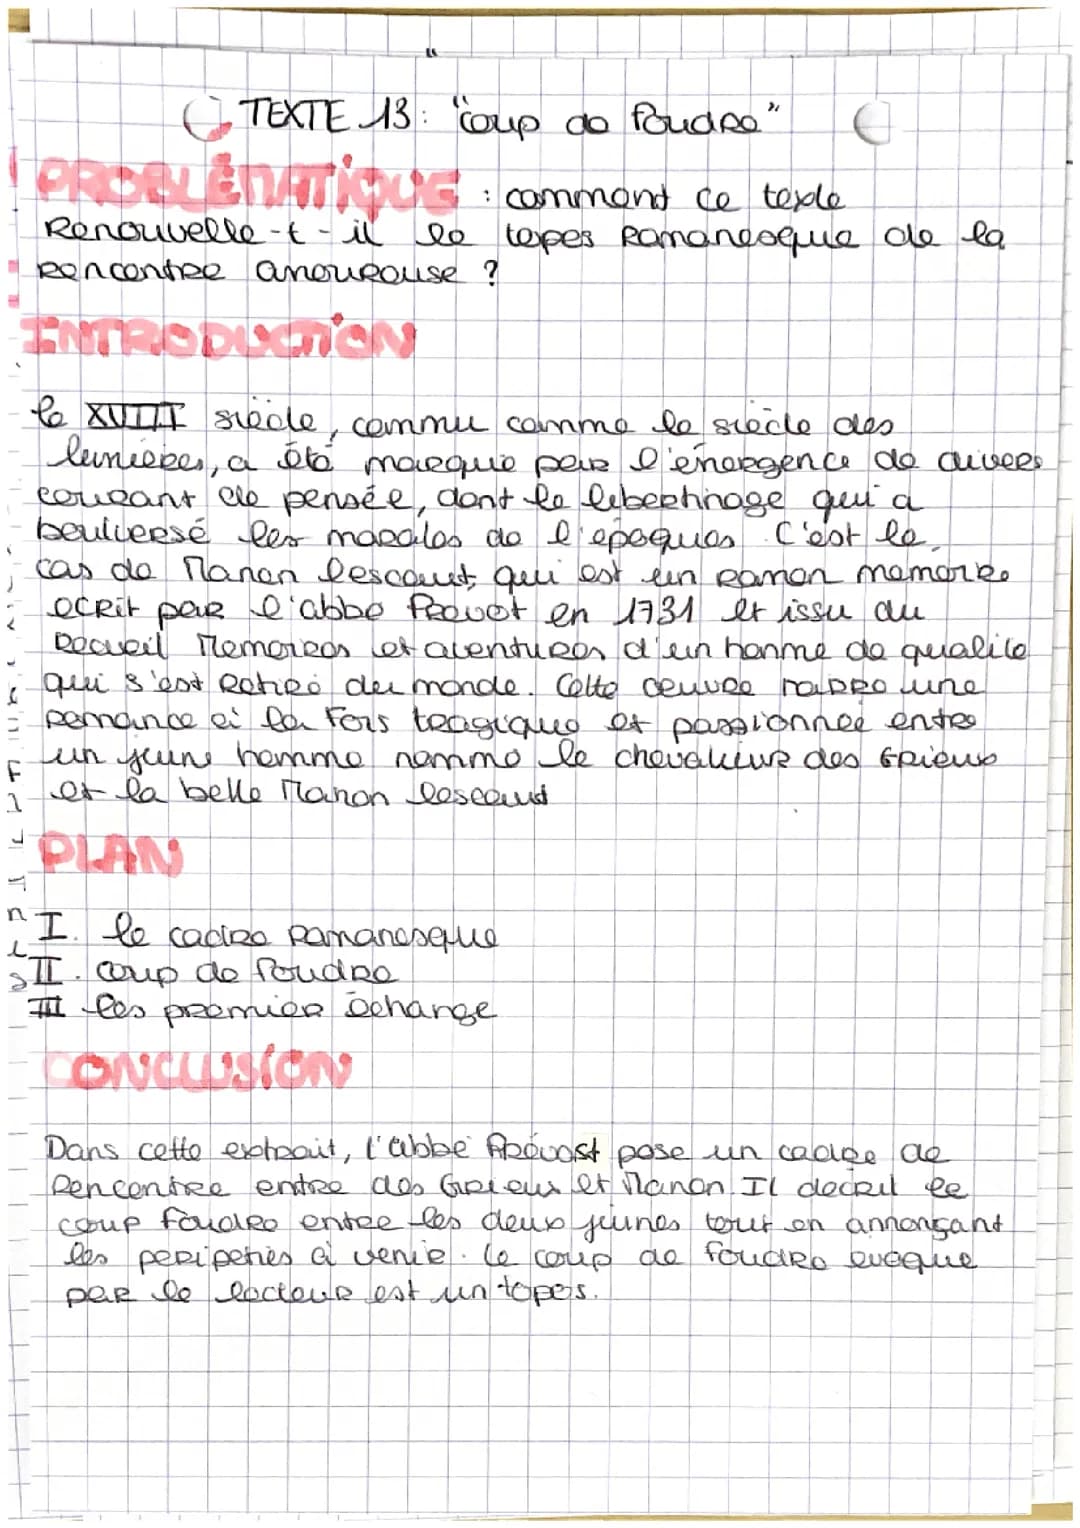 TEXTE 13: "coup de foudre"
PROBLÉMATIQUE : comment ce texte
Renouvelle-t-il le topos Romanesque de la
Rencontre amoureuse ?
INTRODUCTION
le XVIII siècle, connu comme le siècle des
lumières, a été marqué par l'émergence de divers
courant de pensée, dont le libertinage qui a
boulversé les morales de l'époques. C'est le
cas de Manon lescaut, qui est un roman memoire
ecrit par l'abbe Prevot en 1731 et issu du
Recueil Memoires et aventures d'un homme de qualite
qui s'est Retiré du monde. Cette oeuvre narre une
romance à la fois tragique et passionnée entre
un jeune homme nommo le chevalier des Grieux
et la belle Manon lescaut
PLAN
I. le cadre romanesque
II. coup de foudre
III les premier échange
CONCLUSION
Dans cette extrait, l'abbé Prévost pose un cadre de
Rencontre entre des Grieux et Manon. Il decrit le
coup foudre entre les deux jeunes tout en annonçant
les peripeties à venir. le coup de foudre evoque
par le lecteur est un topos.